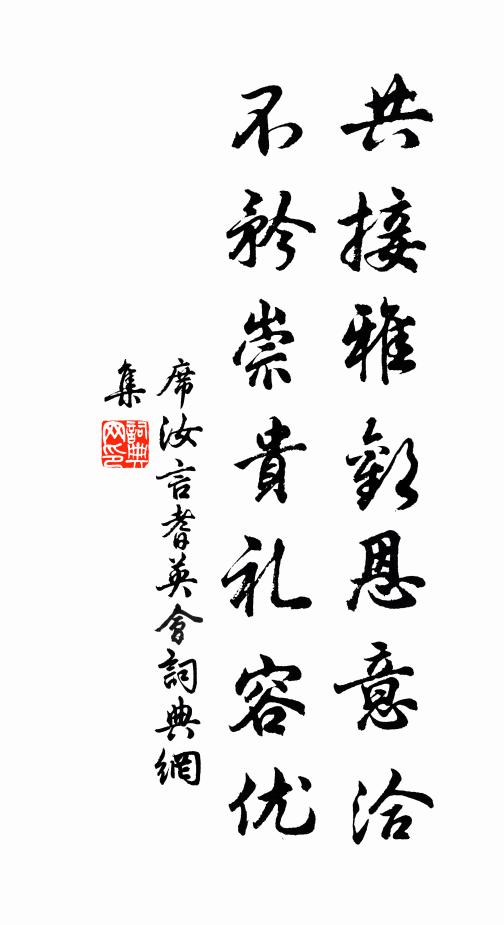 共接雅歡恩意洽
不矜崇貴礼容优
席汝言耆英會詞典網
集
詞典
网印